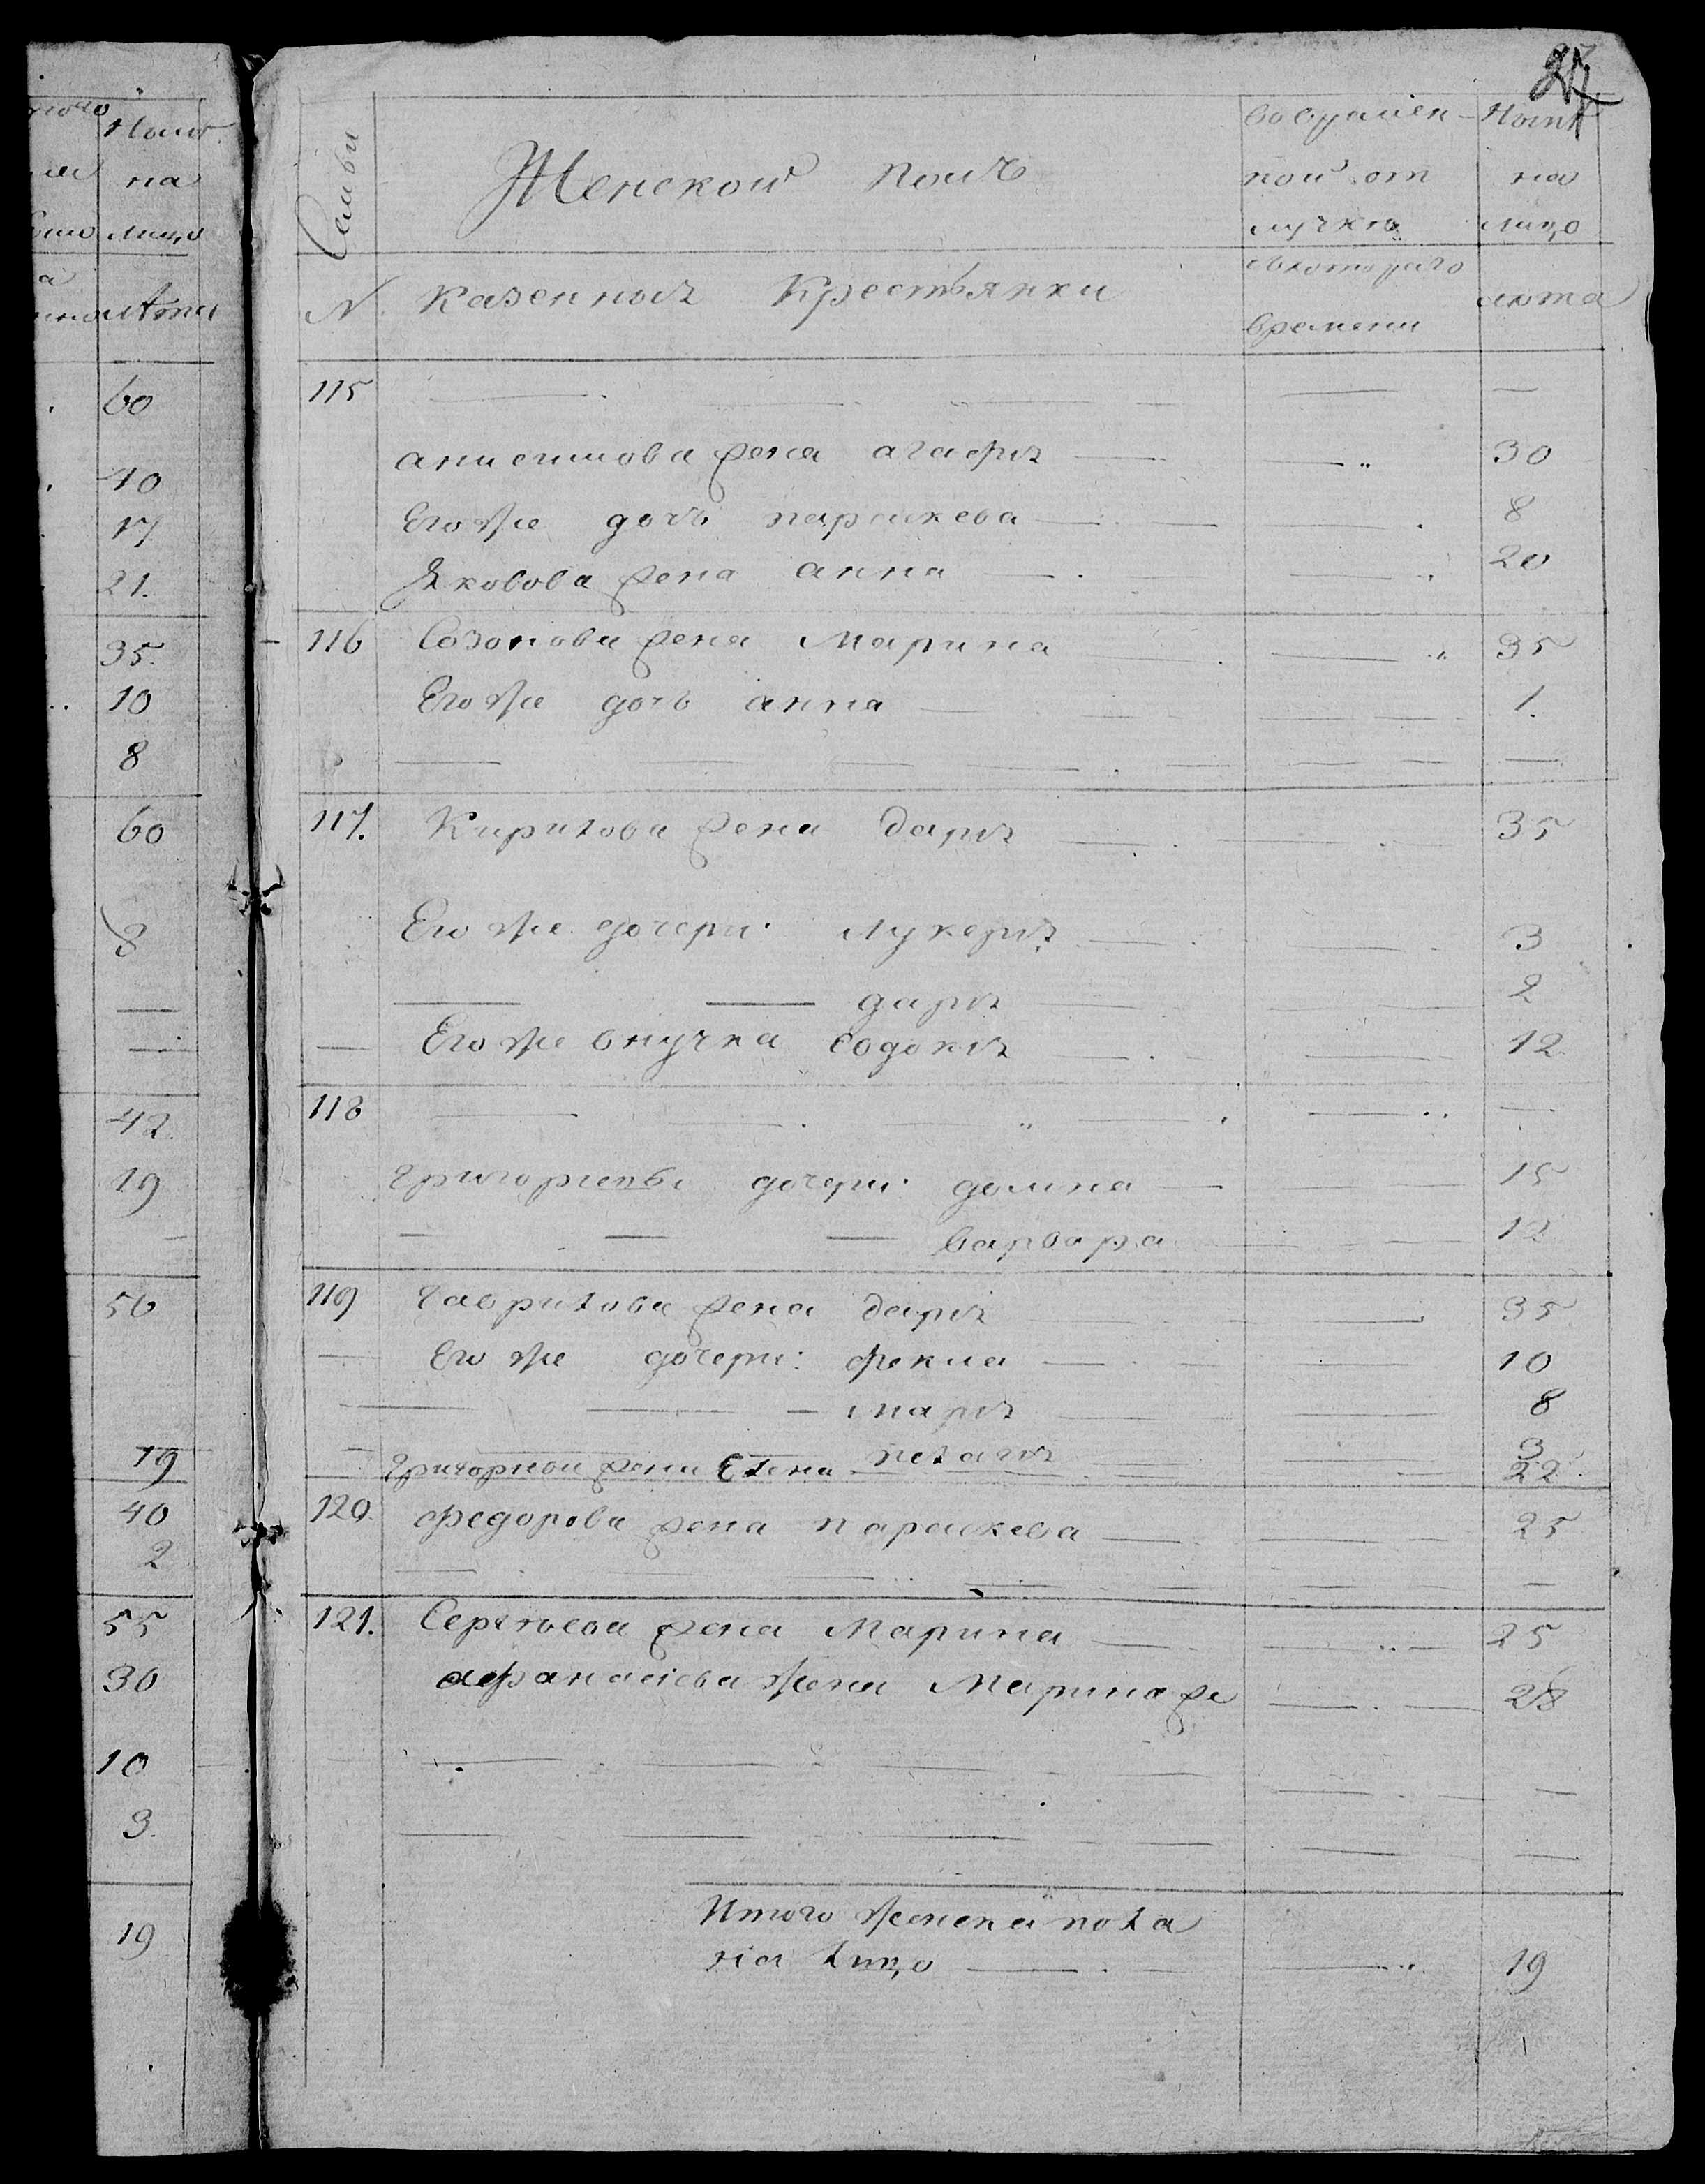 27
Семьи
Женской полъ
во времен-
ной от
лучкѣ
Нынѣ
на
лицо
N. Казенныѣ Крестьянки
съ котораго
времени
лѣта
115
анисимова жена агафиѣ 30
Его же дочь парасkева 8
Яковова жена анна 20
116 Созонова жена Марина 35
Его же дочь анна 1.
117. Кирилова жена дариѣ 35
Его же дочери: лукериѣ 3
дариѣ 2
Его же внучка Евдокиѣ 12
118
григориевы дочери: домна 15
варвара 12
119 гаврилова жена дариѣ 35
Его же дочери: фекла 10
мариѣ 8
пелагиѣ 3
григориеви жена Елена 22
120. федорова жена парасkева 25
121. Сергѣева жена Марина 25
афанасіева жена Марина же 28
Итого женска пола
на лицо 19
на
лицо
лѣта
60
40
17
21.
35.
10
8
60
8
42.
19
56
19
40
2
55
30
10
3.
19